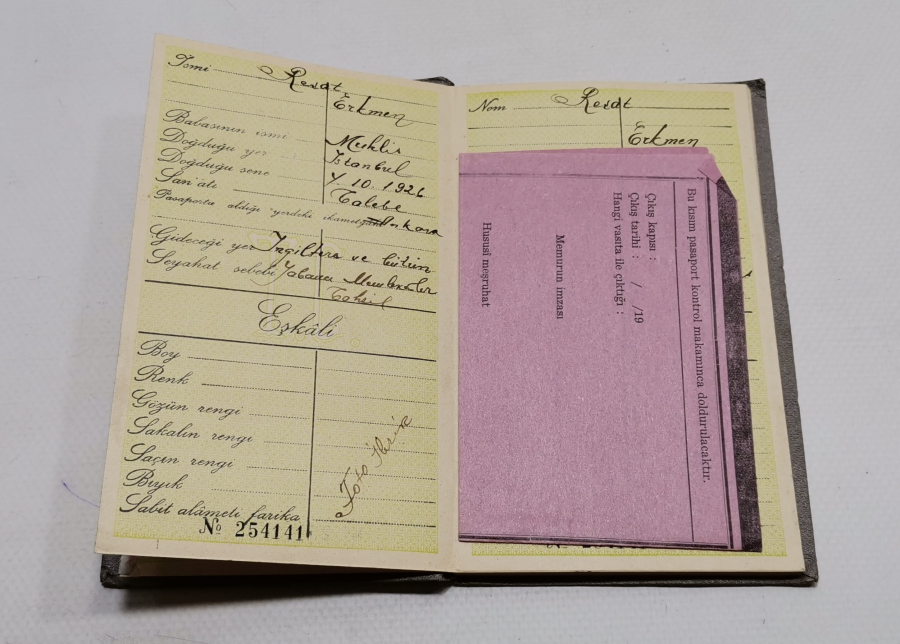 İsmi Resat
Erkmen
Babasının ismi Muhlis
Doğduğu yer İstanbul
Doğduğu sene 4. 10. 1926
San'atı Talebe
Pasaportu aldığı yerdeki ikametgâhı Ankara
Gideceği yer İngiltere ve bütün
Seyahat sebebi Yabancı Memleketler
Tahsil
Eşkâli
Boy
Renk
Gözün rengi
Sakalın rengi
Saçın rengi
Bıyık
Sabit alâmeti farika
No 254141
Nom Resat
Erkmen
Bu kısım pasaport kontrol makamınca doldurulacaktır.
Çıkış kapısı :
Çıkış tarihi : / /19
Hangi vasıta ile çıktığı :
Memurun imzası
Hususî meşruhat